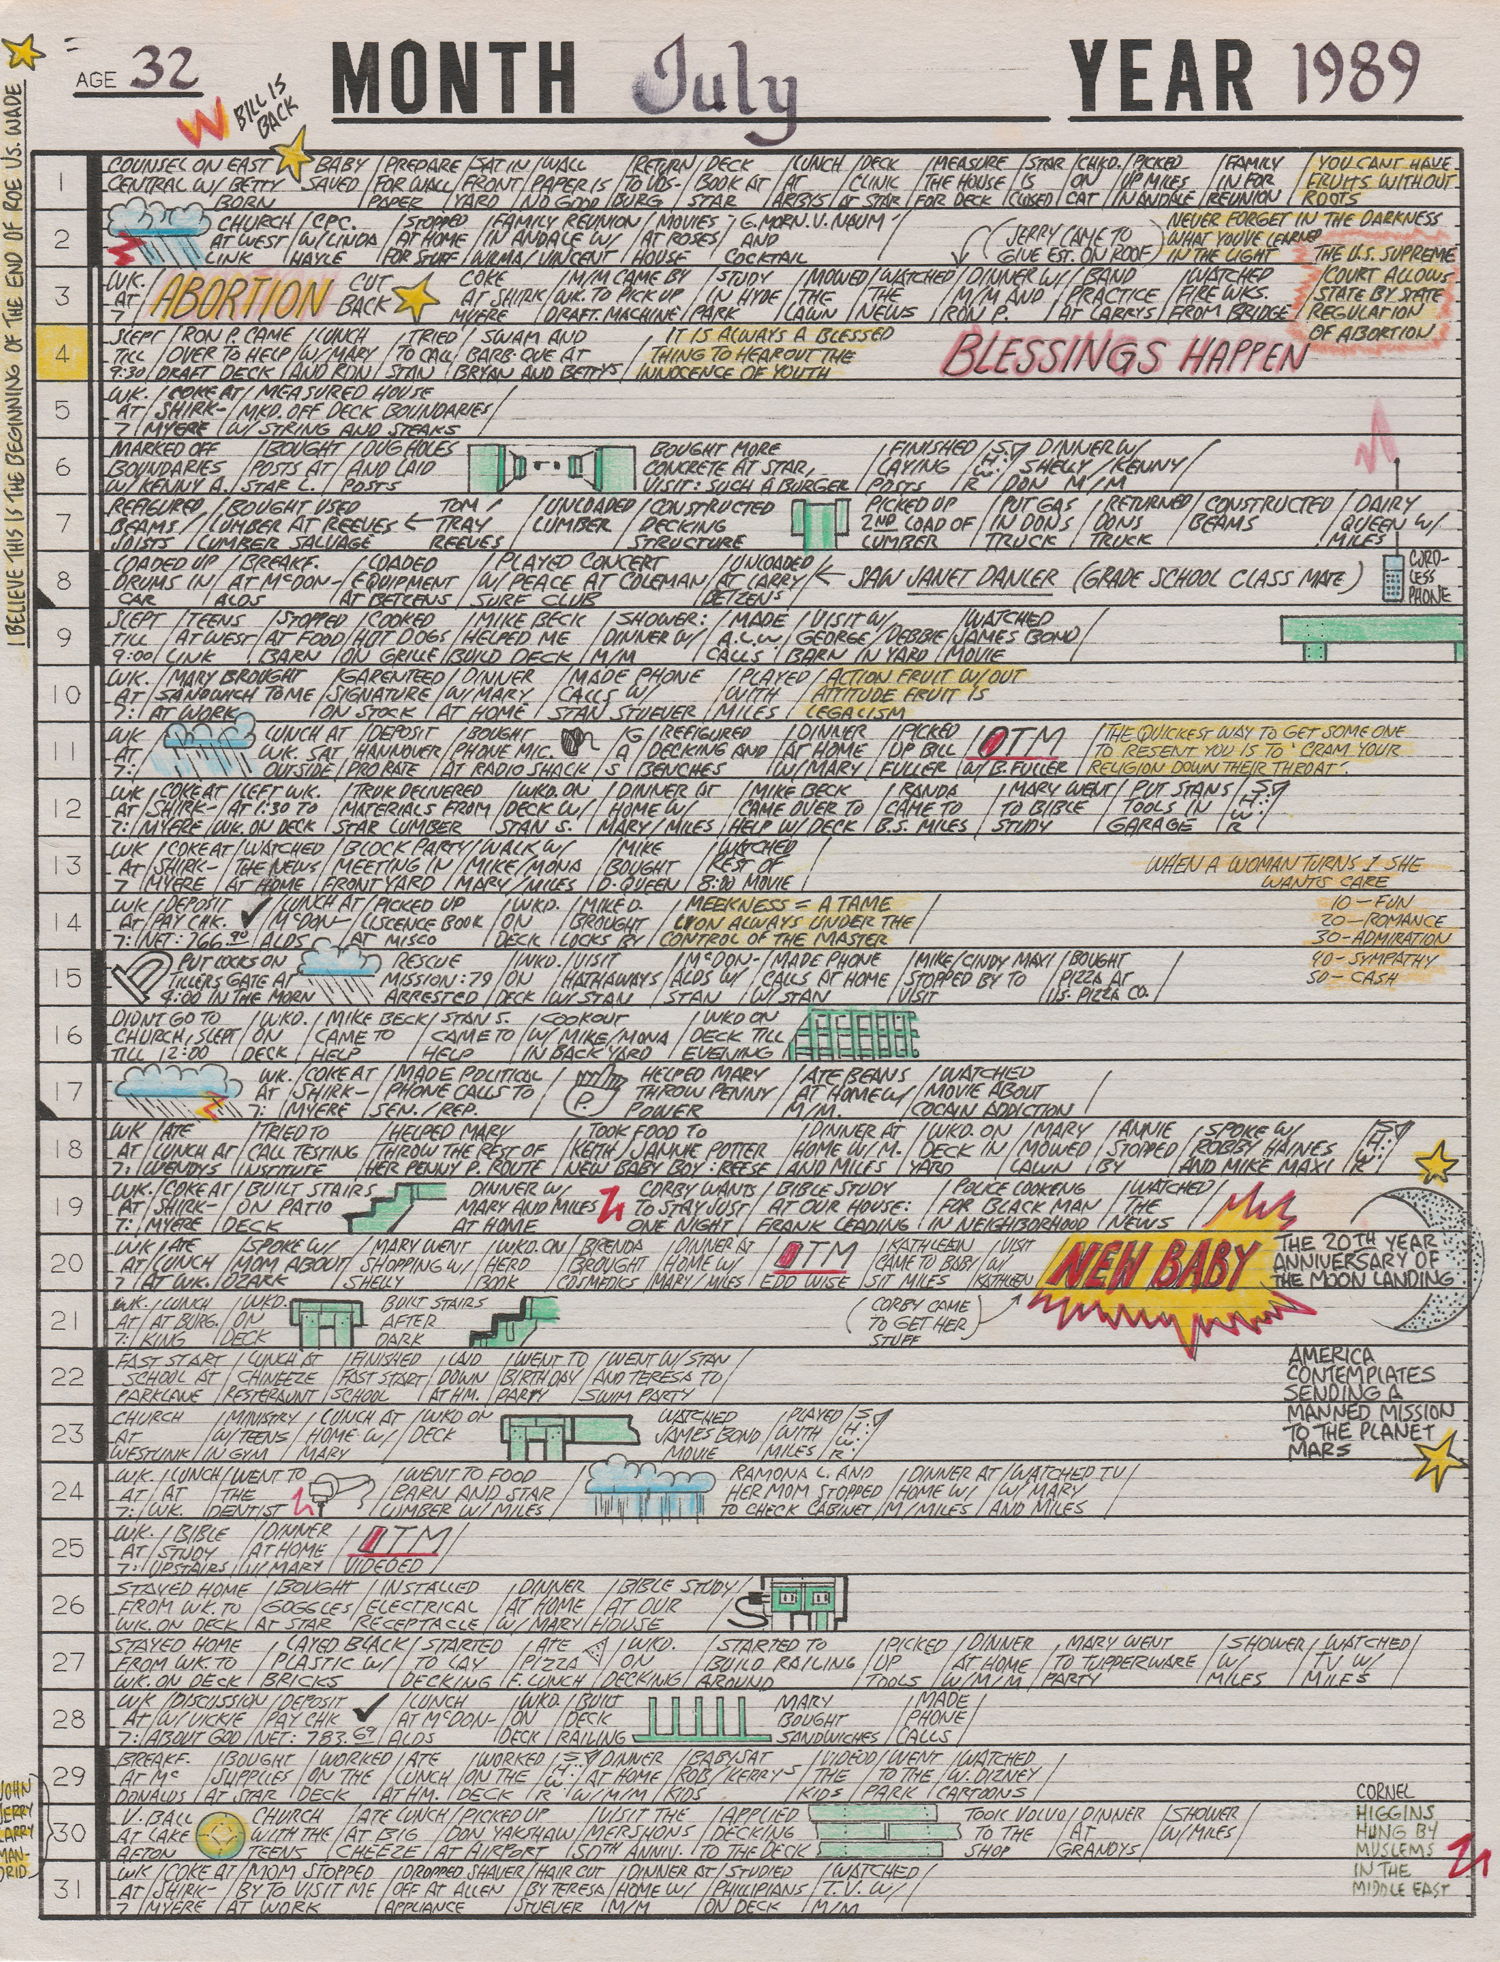 AGE 32
MONTH July
YEAR 1989
BILL IS
BACK
I BELIEVE THIS IS THE BEGINNING OF THE END OF ROE VS. WADE
1
COUNSEL ON EAST / BABY / PREPARE / SAT IN / WALL / RETURN / DECK / LUNCH / DECK / MEASURE / STAR / CHKD. / PICKED / FAMILY / YOU CANT HAVE
CENTRAL W/ BETTY SAVED / FOR WALL / FRONT / PAPER IS / TO VOS- / BOOK AT / AT / CLINIC / THE HOUSE / IS / ON / UP MILES / IN FOR / FRUITS WITHOUT
BORN PAPER / YARD / NO GOOD / BURG / STAR / ARBYS / AT STAR / FOR DECK / CLOSED / CAT / IN ANDALE / REUNION / ROOTS
2
CHURCH / CPC. / STOPPED / FAMILY REUNION / MOVIES / G.MORN.V.NAUM / JERRY CAME TO NEVER FORGET IN THE DARKNESS
AT WEST / W/LINDA / AT HOME / IN ANDALE W/ / AT ROSES / AND GIVE EST. ON ROOF WHAT YOU'VE LEARNED
LINK / HAYLE / FOR STUFF / WILMA/VINCENT / HOUSE / COCKTAIL IN THE LIGHT
THE U.S. SUPREME
COURT ALLOWS
STATE BY STATE
REGULATION
OF ABORTION
3
WK. ABORTION CUT COKE / M/M CAME BY / STUDY / MOWED / WATCHED / DINNER W/ / BAND / WATCHED
AT BACK AT SHIRK / WK. TO PICK UP / IN HYDE / THE / THE / M/M AND / PRACTICE / FIRE WKS.
7 MYERE / DRAFT. MACHINE / PARK / LAWN / NEWS / RON P. / AT LARRYS / FROM BRIDGE
4
SLEPT / RON P. CAME / LUNCH / TRIED / SWAM AND / IT IS ALWAYS A BLESSED
TILL / OVER TO HELP / W/ MARY / TO CALL / BARB-QUE AT / THING TO HEAR OUT THE
9:30 / DRAFT DECK / AND RON / STAN / BRYAN AND BETTYS / INNOCENCE OF YOUTH
BLESSINGS HAPPEN
5
WK. / COKE AT / MEASURED HOUSE
AT / SHIRK- / MKD. OFF DECK BOUNDARIES
7 / MYERE / W/ STRING AND STEAKS
6
MARKED OFF / BOUGHT / DUG HOLES BOUGHT MORE / FINISHED / DINNER W/
BOUNDARIES / POSTS AT / AND LAID CONCRETE AT STAR, / LAYING / SHELLY / KENNY
W/ KENNY A. / STAR L. / POSTS VISIT: SUCH A BURGER / POSTS / DON M/M
7
REFIGURED / BOUGHT USED TOM / UNLOADED / CONSTRUCTED PICKED UP / PUT GAS / RETURNED / CONSTRUCTED / DAIRY
BEAMS / LUMBER AT REEVES ← TRAY LUMBER / DECKING 2ND LOAD OF / IN DONS / DONS / BEAMS / QUEEN W/
JOISTS / LUMBER SALVAGE / REEVES / STRUCTURE LUMBER / TRUCK / TRUCK / MILES
8
LOADED UP / BREAKF. / LOADED / PLAYED CONCERT / UNLOADED
DRUMS IN / AT MCDON- / EQUIPMENT / W/ PEACE AT COLEMAN / AT LARRY ← SAW JANET DANLER (GRADE SCHOOL CLASS MATE)
CAR / ALDS / AT BETZENS / SURF CLUB / BETZENS
CORD-
LESS
PHONE
9
SLEPT / TEENS / STOPPED / COOKED / MIKE BECK / SHOWER: / MADE / VISIT W/ / WATCHED
TILL / AT WEST / AT FOOD / HOT DOGS / HELPED ME / DINNER W/ / A.L.W. / GEORGE / DEBBIE / JAMES BOND
9:00 / LINK / BARN / ON GRILLE / BUILD DECK / M/M / CALLS / BARN IN YARD / MOVIE
10
WK. / MARY BROUGHT / GARENTEED / DINNER / MADE PHONE / PLAYED / ACTION FRUIT W/OUT
AT / SANDWICH TO ME / SIGNATURE / W/ MARY / CALLS W/ / WITH / ATTITUDE FRUIT IS
7: / AT WORK / ON STOCK / AT HOME / STAN STUEVER / MILES / LEGALISM
11
WK LUNCH AT / DEPOSIT / BOUGHT / G / REFIGURED / DINNER / PICKED / OTM THE QUICKEST WAY TO GET SOME ONE
AT WK. SAT / HANNOVER / PHONE MIC. A / DECKING AND / AT HOME / UP BILL TO RESENT YOU IS TO "CRAM YOUR
7: OUTSIDE / PRO RATE / AT RADIO SHACK S / BENCHES / W/ MARY / FULLER / W/ B. FULLER RELIGION DOWN THEIR THROAT".
12
WK / COKE AT / LEFT WK. / TRUK DELIVERED / WKD. ON / DINNER AT / MIKE BECK / RANDA / MARY WENT / PUT STANS
AT / SHIRK- / AT 1:30 TO / MATERIALS FROM / DECK W/ / HOME W/ / CAME OVER TO / CAME TO / TO BIBLE / TOOLS IN
7: / MYERE / WK. ON DECK / STAR LUMBER / STAN S. / MARY/MILES / HELP W/ DECK / B.S. MILES / STUDY / GARAGE
13
WK / COKE AT / WATCHED / BLOCK PARTY / WALK W/ / MIKE / WATCHED
AT / SHIRK- / THE NEWS / MEETING IN / MIKE/MONA / BOUGHT / REST OF
7 / MYERE / AT HOME / FRONT YARD / MARY/MILES / D. QUEEN / 8:00 MOVIE
WHEN A WOMAN TURNS 1 SHE
WANTS CARE
10 — FUN
20 — ROMANCE
30 - ADMIRATION
40 - SYMPATHY
50 - CASH
14
WK / DEPOSIT / LUNCH AT / PICKED UP / WKD. / MIKE D. / MEEKNESS = A TAME
AT / PAY CHK. / MCDON- / LISCENCE BOOK / ON / BROUGHT / LYON ALWAYS UNDER THE
7: / NET: 766.90 / ALDS / AT MISCO / DECK / LOCKS BY / CONTROL OF THE MASTER
15
PUT LOCKS ON RESCUE / WKD. / VISIT / MCDON- / MADE PHONE / MIKE/CINDY MAXI / BOUGHT
TILLERS GATE AT MISSION: 79 / ON / HATHAWAYS / ALDS W/ / CALLS AT HOME / STOPPED BY TO / PIZZA AT
4:00 IN THE MORN ARRESTED / DECK / W/ STAN / STAN / W/ STAN / VISIT / U.S. PIZZA CO.
16
DIDNT GO TO / WKD. / MIKE BECK / STAN S. / COOKOUT / WKD ON
CHURCH, SLEPT / ON / CAME TO / CAME TO / W/ MIKE/MONA / DECK TILL
TILL 12:00 / DECK / HELP / HELP / IN BACK YARD / EVENING
17
WK. / COKE AT / MADE POLITICAL P. HELPED MARY / ATE BEANS / WATCHED
AT / SHIRK- / PHONE CALLS TO THROW PENNY / AT HOME W/ / MOVIE ABOUT
7: / MYERE / SEN. / REP. POWER / M/M. / COCAIN ADDICTION
18
WK / ATE / TRIED TO / HELPED MARY / TOOK FOOD TO / DINNER AT / WKD. ON / MARY / ANNIE / SPOKE W/
AT / LUNCH AT / CALL TESTING / THROW THE REST OF / KEITH / JANNIE POTTER / HOME W/ M. / DECK IN / MOWED / STOPPED / ROBBY HAINES
7: / WENDYS / INSTITUTE / HER PENNY P. ROUTE / NEW BABY BOY: REESE / AND MILES / YARD / LAWN / BY / AND MIKE MAXI
19
WK. / COKE AT / BUILT STAIRS DINNER W/ CORBY WANTS / BIBLE STUDY / POLICE LOOKING / WATCHED
AT / SHIRK- / ON PATIO MARY AND MILES TO STAY JUST / AT OUR HOUSE: / FOR BLACK MAN / THE
7: / MYERE / DECK AT HOME ONE NIGHT / FRANK LEADING / IN NEIGHBORHOOD / NEWS
20
WK / ATE / SPOKE W/ / MARY WENT / WKD. ON / BRENDA / DINNER AT / OTM / KATHLEEN / VISIT
AT / LUNCH / MOM ABOUT / SHOPPING W/ / HERD / BROUGHT / HOME W/ CAME TO BABY / W/
7 / AT WK. / OZARK / SHELLY / BOOK / COSMETICS / MARY/MILES / EDD WISE / SIT MILES / KATHLEEN
NEW BABY
THE 20TH YEAR
ANNIVERSARY OF
THE MOON LANDING
21
WK. / LUNCH / WKD. BUILT STAIRS (CORBY CAME
AT / AT BURG. / ON AFTER TO GET HER
7: / KING / DECK DARK STUFF)
22
FAST START / LUNCH AT / FINISHED / LAID / WENT TO / WENT W/ STAN
SCHOOL AT / CHINEEZE / FAST START / DOWN / BIRTHDAY / AND TERESA TO
PARKLANE / RESTERAUNT / SCHOOL / AT HM. / PARTY / SWIM PARTY
AMERICA
CONTEMPLATES
SENDING A
MANNED MISSION
TO THE PLANET
MARS
23
CHURCH / MINISTRY / LUNCH AT / WKD ON WATCHED / PLAYED
AT / W/ TEENS / HOME W/ / DECK JAMES BOND / WITH
WESTLINK / IN GYM / MARY MOVIE / MILES
24
WK. / LUNCH / WENT TO / WENT TO FOOD RAMONA L. AND / DINNER AT / WATCHED TV
AT / AT / THE BARN AND STAR HER MOM STOPPED / HOME W/ / W/ MARY
7: / WK. / DENTIST LUMBER W/ MILES TO CHECK CABINET / M/MILES / AND MILES
25
WK. / BIBLE / DINNER OTM
AT / STUDY / AT HOME
7: / UPSTAIRS / W/ MARY / VIDEOED
26
STAYED HOME / BOUGHT / INSTALLED / DINNER / BIBLE STUDY
FROM WK. TO / GOGGLES / ELECTRICAL / AT HOME / AT OUR
WK. ON DECK / AT STAR / RECEPTACLE / W/ MARY / HOUSE
27
STAYED HOME / LAYED BLACK / STARTED / ATE / WKD. / STARTED TO / PICKED / DINNER / MARY WENT / SHOWER / WATCHED
FROM WK. TO / PLASTIC W/ / TO LAY / PIZZA / ON / BUILD RAILING / UP / AT HOME / TO TUPPERWARE / W/ / TV W/
WK. ON DECK / BRICKS / DECKING / F. LUNCH / DECKING / AROUND / TOOLS / W/ M/M / PARTY / MILES / MILES
28
WK / DISCUSSION / DEPOSIT / LUNCH / WKD. / BUILT MARY / MADE
AT / W/ VICKIE / PAY CHK / AT MCDON- / ON / DECK BOUGHT / PHONE
7: / ABOUT GOD / NET: 783.69 / ALDS / DECK / RAILING SANDWICHES / CALLS
29
BREAKF. / BOUGHT / WORKED / ATE / WORKED / DINNER / BABYSAT / VIDEOD / WENT / WATCHED
AT MC / SUPPLIES / ON THE / LUNCH / ON THE / AT HOME / ROB/KERRYS / THE / TO THE / W. DIZNEY
DONALDS / AT STAR / DECK / AT HM. / DECK / W/ M/M / KIDS / KIDS / PARK / CARTOONS
30
V. BALL CHURCH / ATE LUNCH / PICKED UP / VISIT THE / APPLIED TOOK VOLVO / DINNER / SHOWER
AT LAKE WITH THE / AT BIG / DON YAKSHAW / MERSHONS / DECKING TO THE / AT / W/ MILES
AFTON TEENS / CHEEZE / AT AIRPORT / 50TH ANNIV. / TO THE DECK SHOP / GRANDYS
31
WK / COKE AT / MOM STOPPED / DROPPED SHAVER / HAIR CUT / DINNER AT / STUDIED / WATCHED
AT / SHIRK- / BY TO VISIT ME / OFF AT ALLEN / BY TERESA / HOME W/ / PHILLIPIANS / T.V. W/
7 / MYERE / AT WORK / APPLIANCE / STUEVER / M/M / ON DECK / M/M
CORNEL
HIGGINS
HUNG BY
MUSLEMS
IN THE
MIDDLE EAST